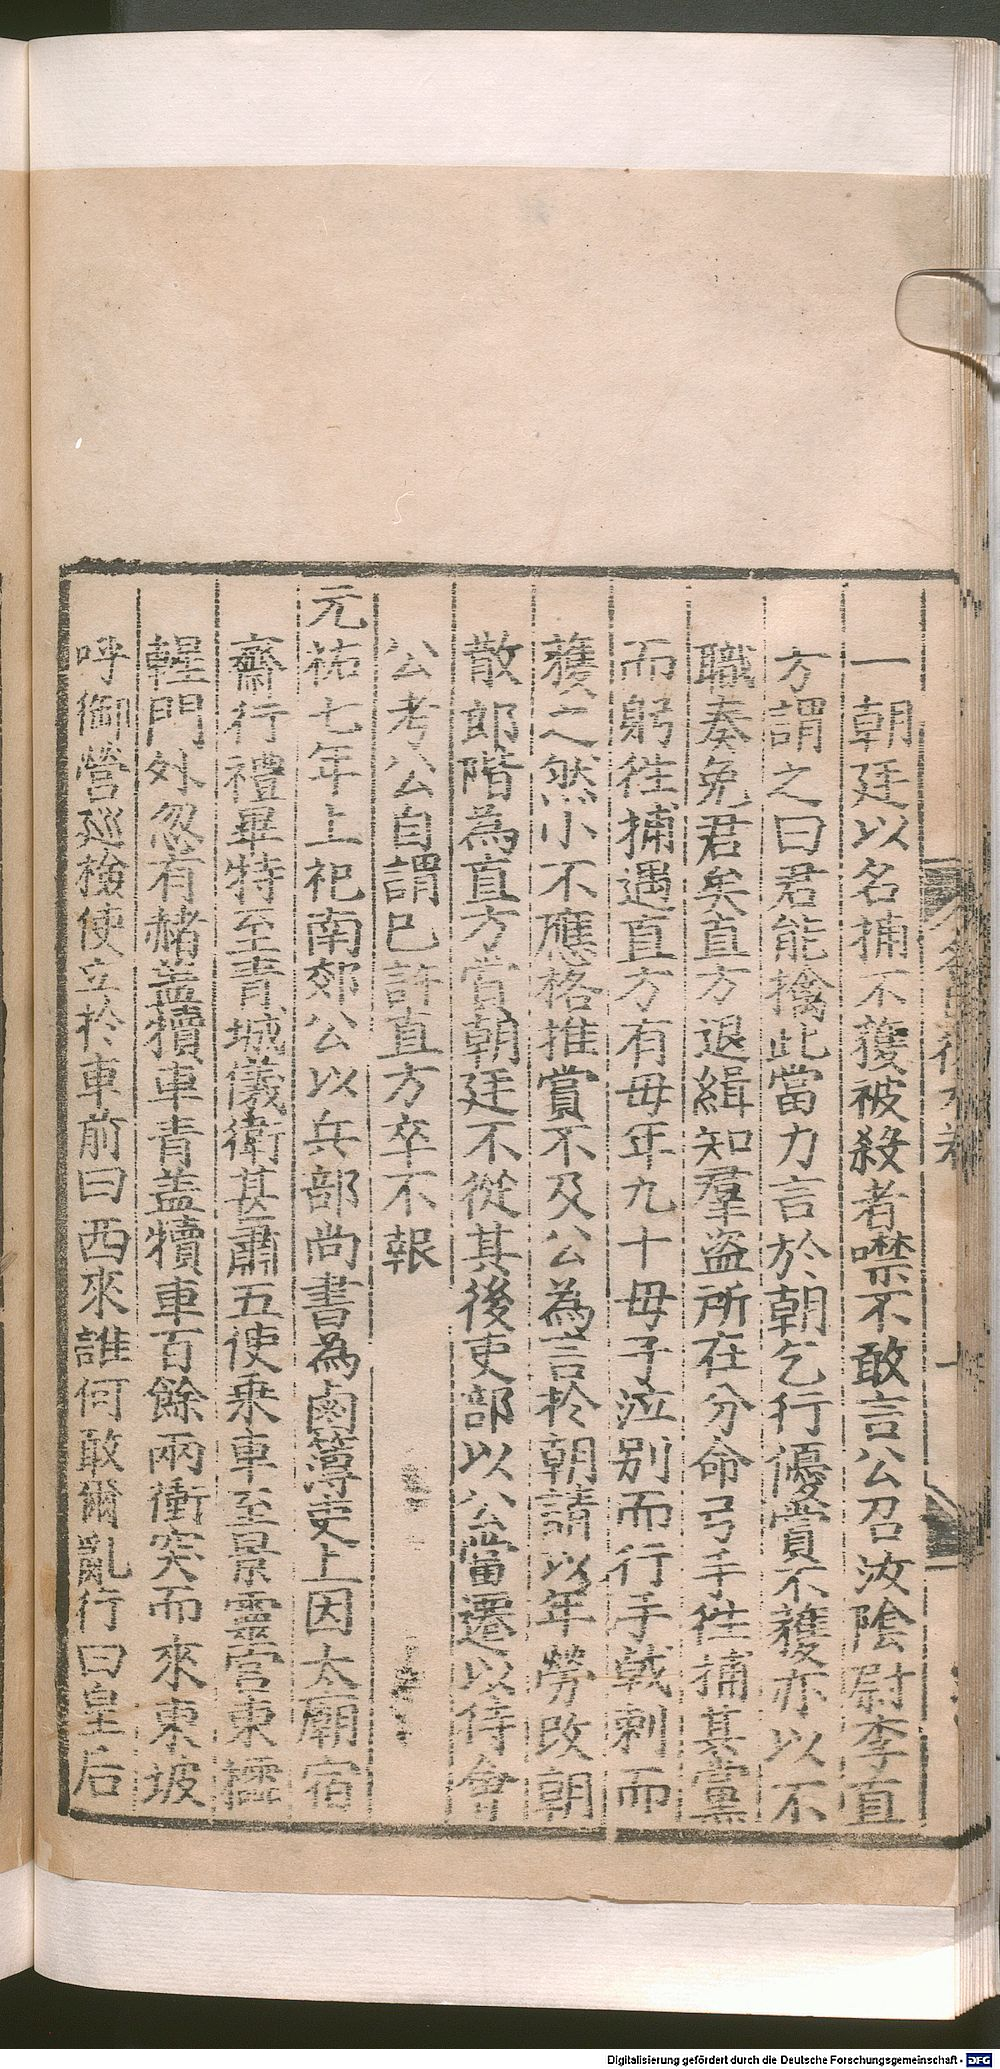 一朝廷以名捕不獲被殺者噤不敢言公召汝陰尉李直
方謂之曰君能擒此當力言於朝乞行優賞不獲亦以不
職奏免君矣直方退緝知羣盗所在分命弓手徃捕其黨
而躬徃捕遇直方有毋年九十毋子泣别而行手戟刺而
獲之然小不應格推賞不及公為言於朝請以年勞改朝
散郎階為直方賞朝廷不從其後吏部以公當遷以待㑹
公考公自謂已許直方卒不報
元祐七年上祀南郊公以兵部尚書為鹵簿吏上因太廟宿
齋行禮畢特至青城儀衛甚肅五使乘車至景靈宫東櫺
鞓門外忽有赭盖犢車青盖犢車百餘兩衝突而來東坡
呼御營廵檢使立於車前曰西來誰何敢爾亂行曰皇后
Digitalisierung gefördert durch die Deutsche Forschungsgemeinschaft - DFG